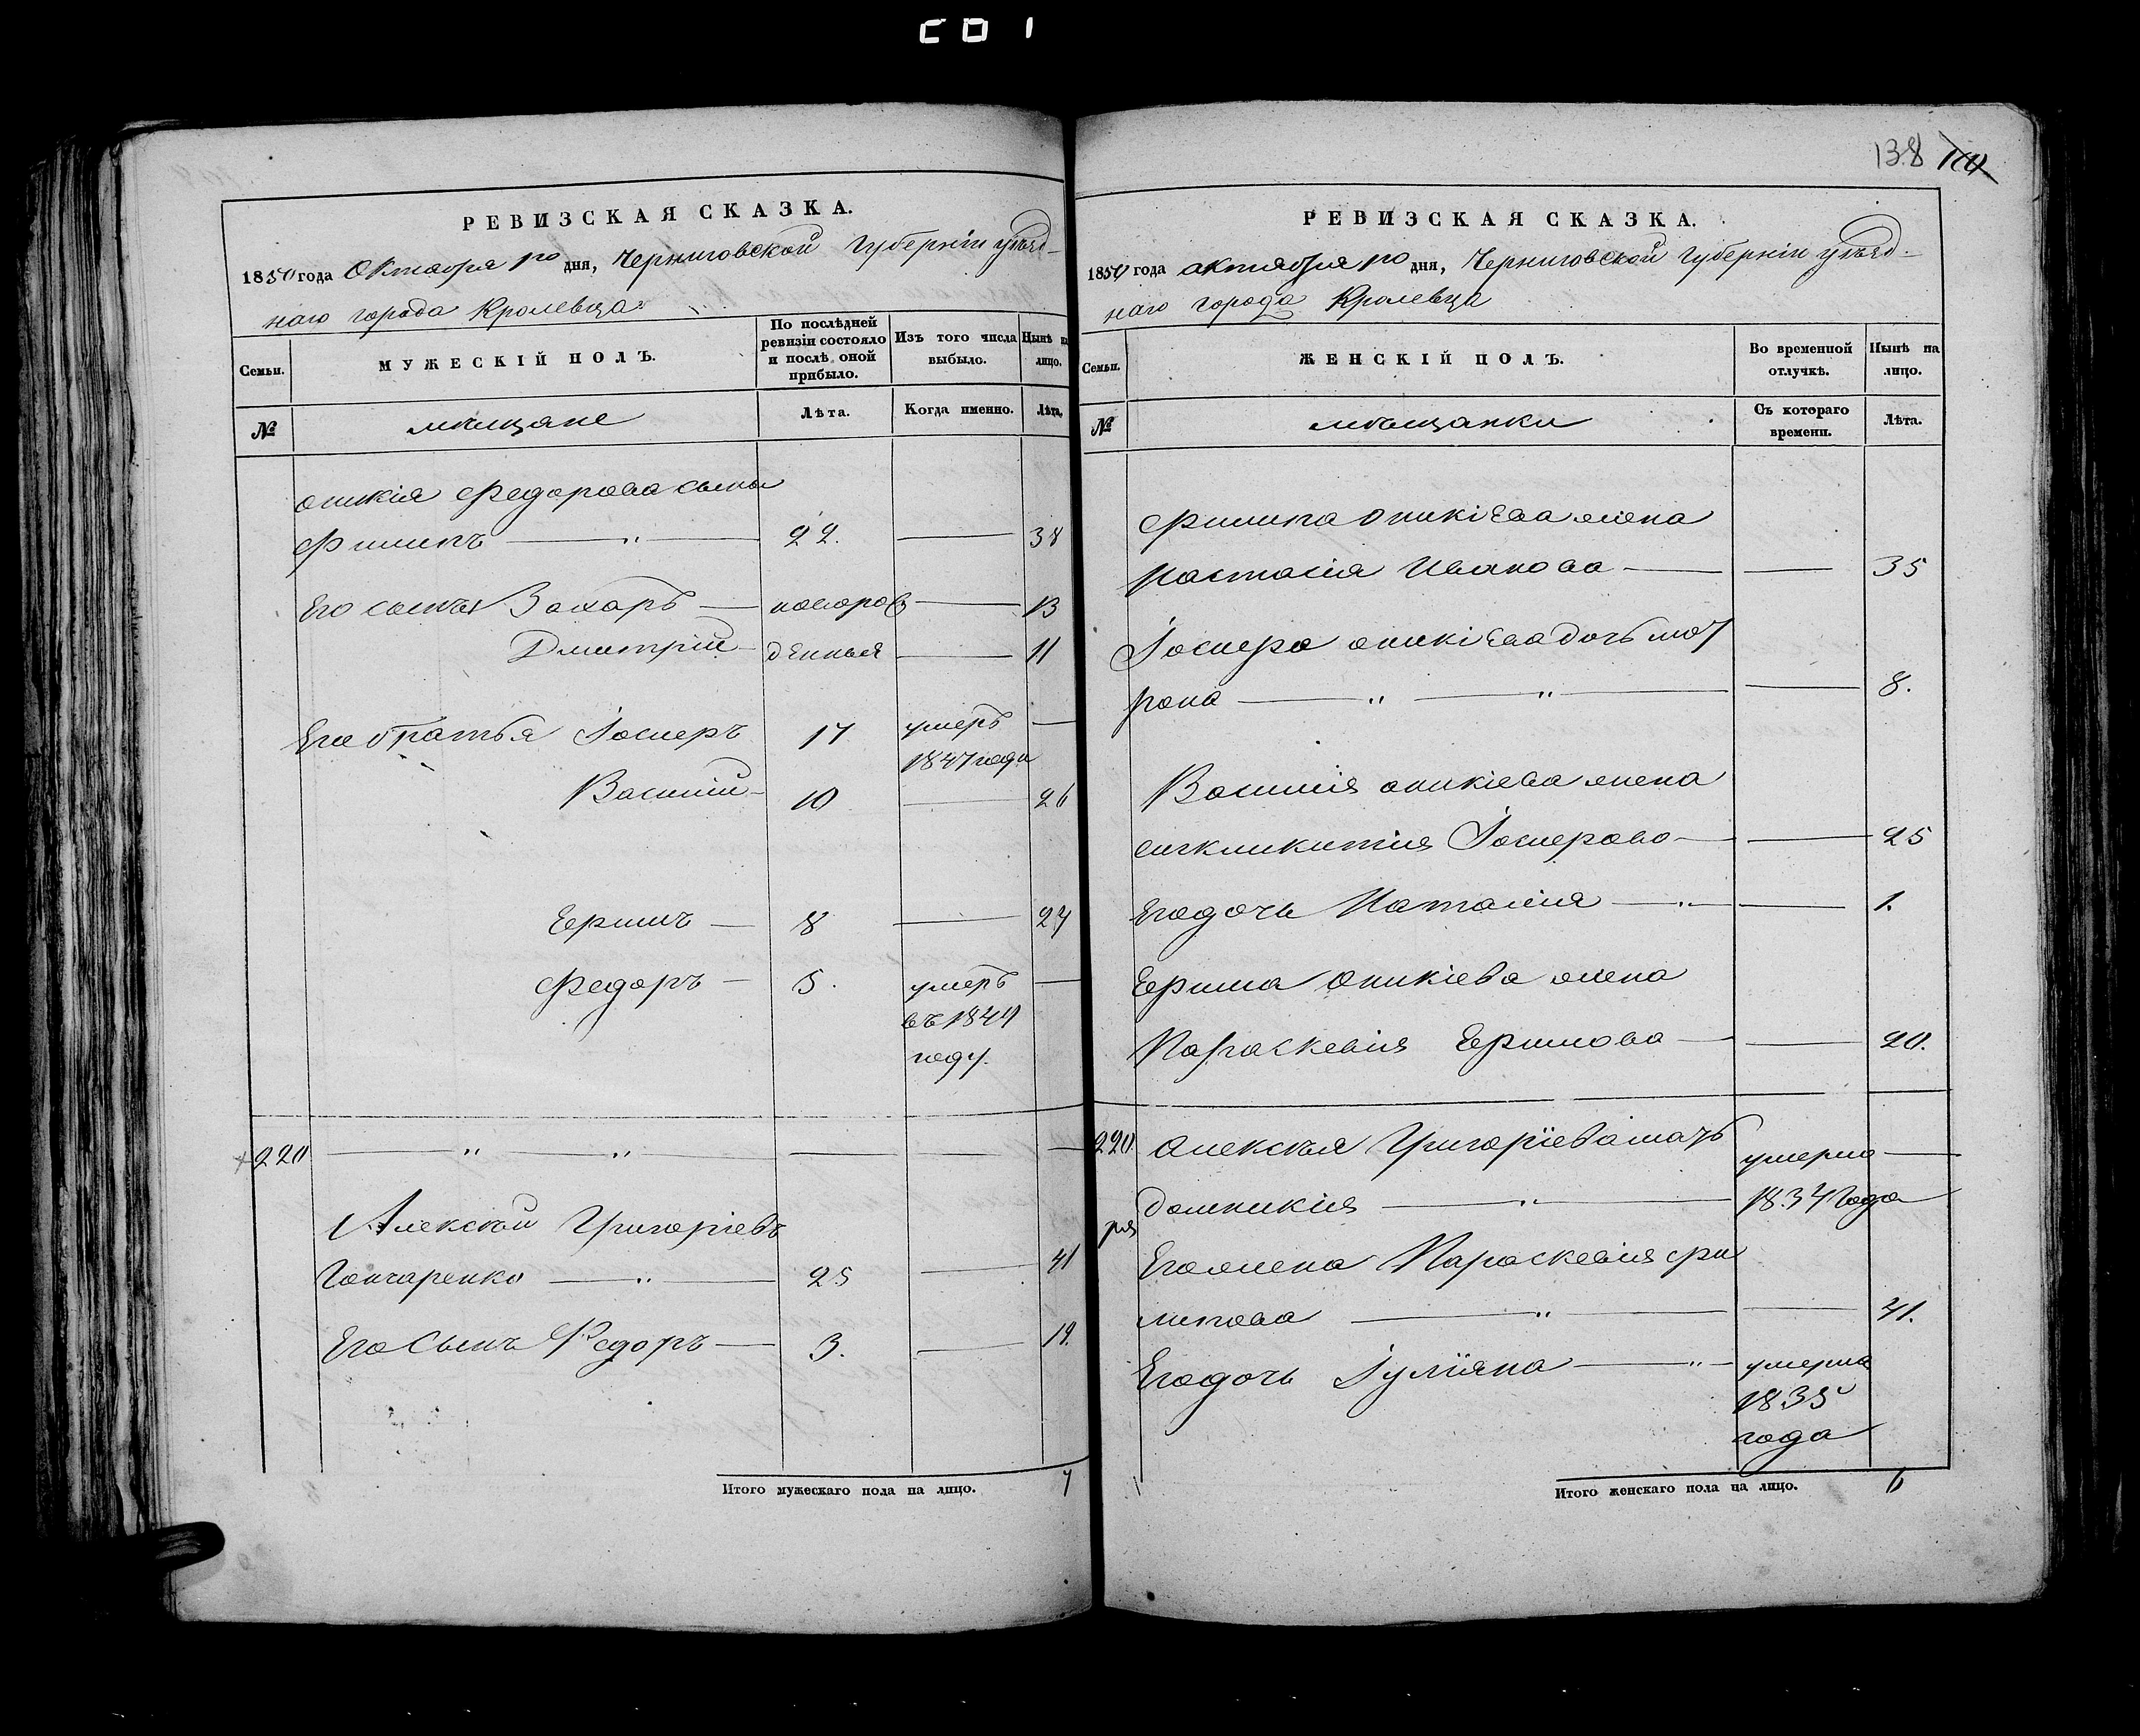 CD 1
138
РЕВИЗСКАЯ СКАЗКА.
1850 года Октября 1го дня, Черниговской Губерніи уѣзд-
наго города Кролевца
Семьи.
МУЖЕСКІЙ ПОЛЪ.
По послѣдней ревизіи состояло и послѣ оной прибыло.
Изъ того числа выбыло.
Нынѣ на лицо.
№
мѣщане
Лѣта.
Когда именно.
Лѣта.
оникія Федорова сыны
Филипъ — " — 22. — 38
Его сыны Захаръ — новорож — 13
Дмитрій — денныя — 11
Его братья Іосиеръ 17 умеръ —
1847 года
Василій — 10 — 26
Ефимъ — 8 — 24
Федоръ — 5. умеръ —
въ 1844
году.
220 — " — " — —
Алексѣй Григоріевъ
Гончаренко — " — 25 — 41
Его Сынъ Федоръ — 3. — 19.
Итого мужескаго пола на лицо. 7
РЕВИЗСКАЯ СКАЗКА.
1850 года октября 1го дня, Черниговской Губерніи уѣзд-
наго города Кролевца
Семьи.
ЖЕНСКІЙ ПОЛЪ.
Во временной отлучкѣ.
Нынѣ на лицо.
№
мѣщанки
Съ котораго времени.
Лѣта.
Филипа оникіева жена
Настасія Иванова — — 35
оникіева дочь мот
рона — " — " — — 8.
Василія оникіева жена
— — 25
Его дочь Наталія — " — — 1.
Ефима оникіева жена
Параскевія Ефимова — — 20.
220. Алексѣя Григоріева мать
Домникія — " — умерла —
1834 года
Его жена Параскевія Фи
липова — " — — 41.
Его дочь Іуліяна — " — умерла
1835
года
Итого женскаго пола на лицо. 6